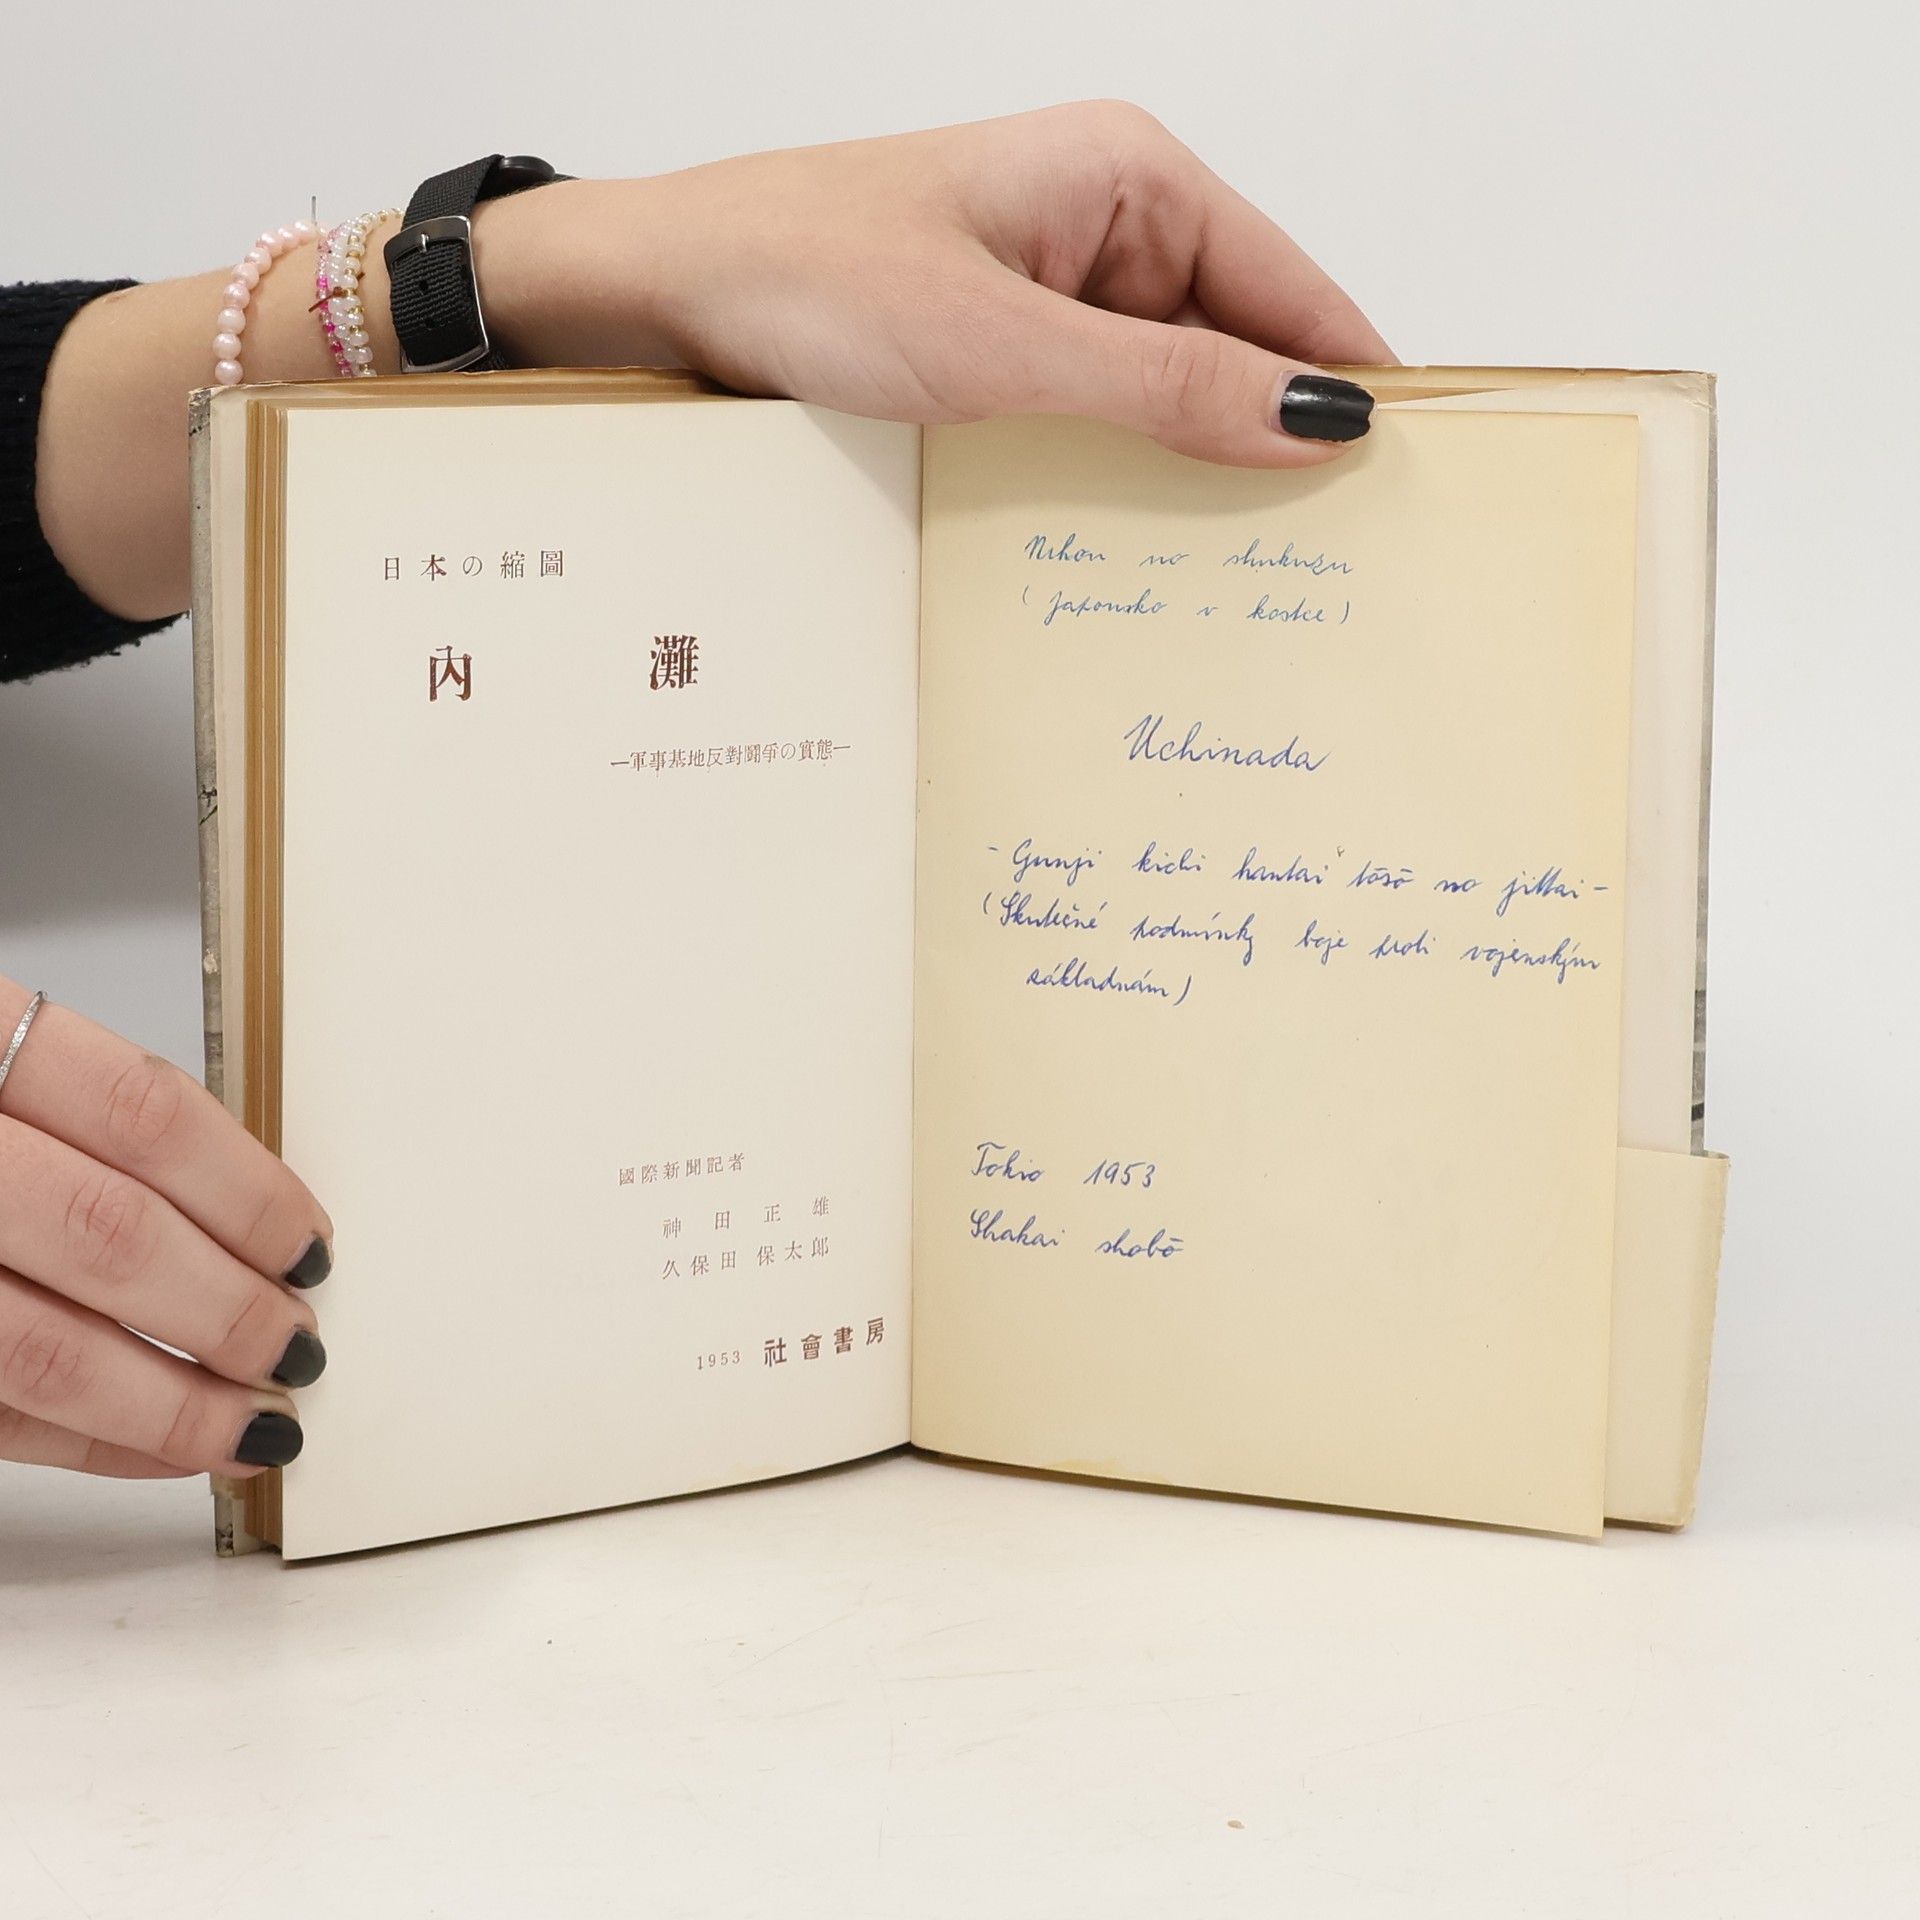 日本の縮圖
內灘
―軍事基地反對鬪爭の實態―
國際新聞記者
神田正雄
久保田保太郎
1953 社會書房
Nihon no shukuzu
(Japonsko v kostce)
Uchinada
- Gunji kichi hantai tōsō no jittai -
(Skutečné podmínky boje proti vojenským
základnám)
Tokio 1953
Shakai shobō